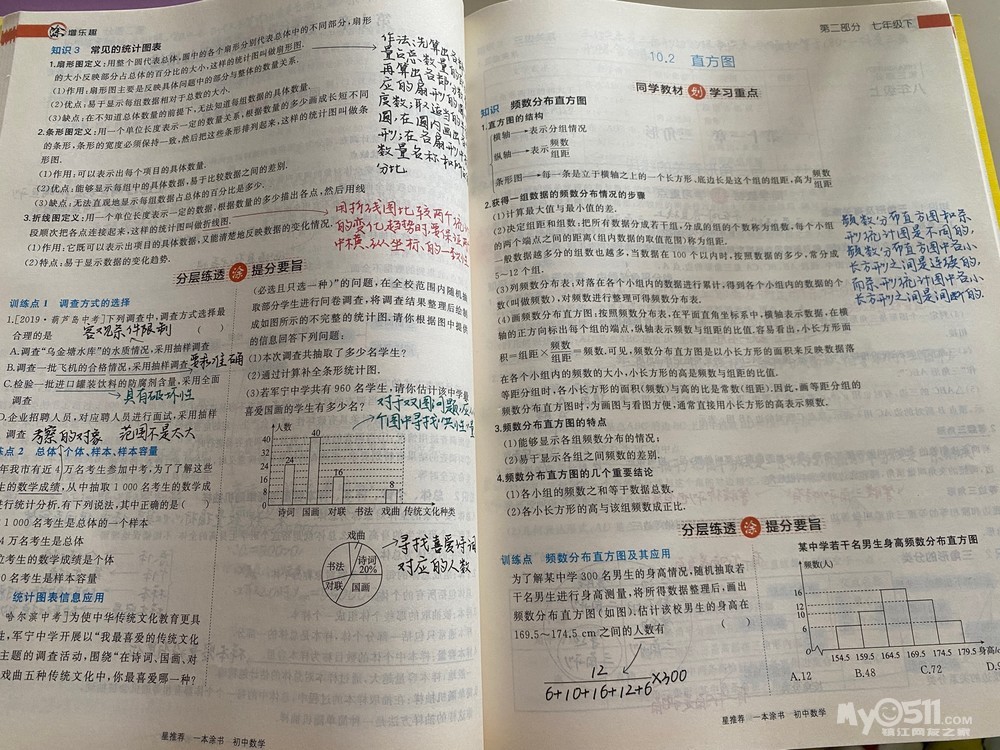 涂 增乐趣
知识3 常见的统计图表
1.扇形图定义：用整个圆代表总体,圆中的各个扇形分别代表总体中的不同部分,扇形
的大小反映部分占总体的百分比的大小,这样的统计图叫做扇形图.
(1)作用：扇形图主要是反映具体问题中的部分与整体的数量关系.
(2)优点：易于显示每组数据相对于总数的大小.
(3)缺点：在不知道总体数量的前提下,无法知道每组数据的具体数量.
2.条形图定义：用一个单位长度表示一定的数量关系,根据数量的多少画成长短不同
的条形,条形的宽度必须保持一致,然后把这些条形排列起来,这样的统计图叫做条
形图.
(1)作用：可以表示出每个项目的具体数量.
(2)优点：能够显示每组中的具体数据,易于比较数据之间的差别.
(3)缺点：无法直观地显示每组数据占总体的百分比是多少.
3.折线图定义：用一个单位长度表示一定的数据,根据数量的多少描出各点,然后用线
段顺次把各点连接起来,这样的统计图叫做折线图.
(1)作用：它既可以表示出项目的具体数据,又能清楚地反映数据的变化情况.
(2)特点：易于显示数据的变化趋势.
作法:先算出各
量占总数量的
再算出各部分
应的扇形的
度数;取适当的
圆,在圆内画出
形;在各扇形中
数量名称和
分比
用折线图比较两个统
的变化趋势时要保证
中横、纵坐标的一致性
分层练透 涂 提分要旨
训练点1 调查方式的选择
1.[2019·葫芦岛中考]下列调查中,调查方式选择最
合理的是 ( )
客观条件限制
A.调查“乌金塘水库”的水质情况,采用抽样调查
B.调查一批飞机的合格情况,采用抽样调查
要求准确
C.检验一批进口罐装饮料的防腐剂含量,采用全面
调查
具有破坏性
D.企业招聘人员,对应聘人员进行面试,采用抽样
调查 考察的对象 范围不是太大
练点2 总体、个体、样本、样本容量
年我市有近4万名考生参加中考,为了了解这些
生的数学成绩,从中抽取1 000名考生的数学成
进行统计分析.有下列说法,其中正确的是( )
1 000名考生是总体的一个样本
4万名考生是总体
位考生的数学成绩是个体
0名考生是样本容量
统计图表信息应用
哈尔滨中考]为使中华传统文化教育更具
性,军宁中学开展以“我最喜爱的传统文化
主题的调查活动,围绕“在诗词、国画、对
戏曲五种传统文化中,你最喜爱哪一种?
(必选且只选一种)”的问题,在全校范围内随机抽
取部分学生进行问卷调查,将调查结果整理后绘制
成如图所示的不完整的统计图.请你根据图中提供
的信息回答下列问题:
(1)本次调查共抽取了多少名学生?
(2)通过计算补全条形统计图.
(3)若军宁中学共有960名学生,请你估计该中学最
喜爱国画的学生有多少名?
对于双图问题,应从
个图中寻找
人数
40
36
32
28
24
20
16
12
8
4
0
24
40
16
8
诗词 国画 对联 书法 戏曲 传统文化种类
戏曲
书法
诗词
20%
对联
国画
寻找喜爱诗词
对应的人数
星推荐 一本涂书 初中数学
第二部分 七年级下
10.2 直方图
同学教材 划 学习重点
知识 频数分布直方图
1.直方图的结构
横轴→表示分组情况
纵轴→表示频数/组距
条形图→每一条是立于横轴之上的一个长方形、底边长是这个组的组距,高为频数/组距
2.获得一组数据的频数分布情况的步骤
(1)计算最大值与最小值的差.
(2)决定组距和组数:把所有数据分成若干组,分成的组的个数称为组数,每个小组
的两个端点之间的距离(组内数据的取值范围)称为组距.
一般数据越多分的组数也越多,当数据在100个以内时,按照数据的多少,常分成
5～12个组.
(3)列频数分布表:对落在各个小组内的数据进行累计,得到各个小组内的数据的个
数(叫做频数),对频数进行整理可得频数分布表.
(4)画频数分布直方图:按照频数分布表,在平面直角坐标系中,横轴表示数据,在横
轴的正方向标出每个组的端点,纵轴表示频数与组距的比值.容易看出,小长方形面
积=组距×频数/组距=频数.可见,频数分布直方图是以小长方形的面积来反映数据落
在各个小组内的频数的大小,小长方形的高是频数与组距的比值.
等距分组时,各小长方形的面积(频数)与高的比是常数(组距).因此,画等距分组的
频数分布直方图时,为画图与看图方便,通常直接用小长方形的高表示频数.
3.频数分布直方图的特点
(1)能够显示各组频数分布的情况;
(2)易于显示各组之间频数的差别.
4.频数分布直方图的几个重要结论
(1)各小组的频数之和等于数据总数.
(2)各小长方形的高与该组频数成正比.
频数分布直方图和条
形统计图是不同的,
频数分布直方图中各小
长方形之间是连续的,
而条形统计图中各小
长方形之间是间断的.
分层练透 涂 提分要旨
训练点 频数分布直方图及其应用
为了解某中学300名男生的身高情况,随机抽取若
干名男生进行身高测量,将所得数据整理后,画出
频数分布直方图(如图).估计该校男生的身高在
169.5～174.5 cm之间的人数有 ( )
12/(6+10+16+12+6)×300
某中学若干名男生身高频数分布直方图
频数(人)
16
12
10
6
154.5 159.5 164.5 169.5 174.5 179.5 身高/c
A.12 B.48 C.72 D.
星推荐 一本涂书 初中数学
My0511.COM
镇江网友之家